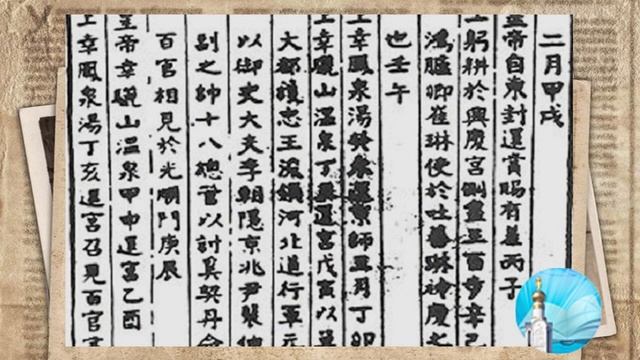 二月甲戌
皇帝自東封還賞賜有差丙子
上躬耕於興慶宮側盡三百步辛巳
鴻臚卿崔琳使於吐蕃琳神慶之
也壬午
上幸鳳泉湯癸未還京師五月丁卯
上幸驪山溫泉丁還宮戊寅以單
大都護忠王浚領河北道行軍元
以御史大夫李朝隱京兆尹裴伷
副之帥十八總管以討奚契丹命
百官相見於光順門庚辰
皇帝幸驪山溫泉甲申還宮乙酉
上幸鳳泉湯丁亥還宮召見百官